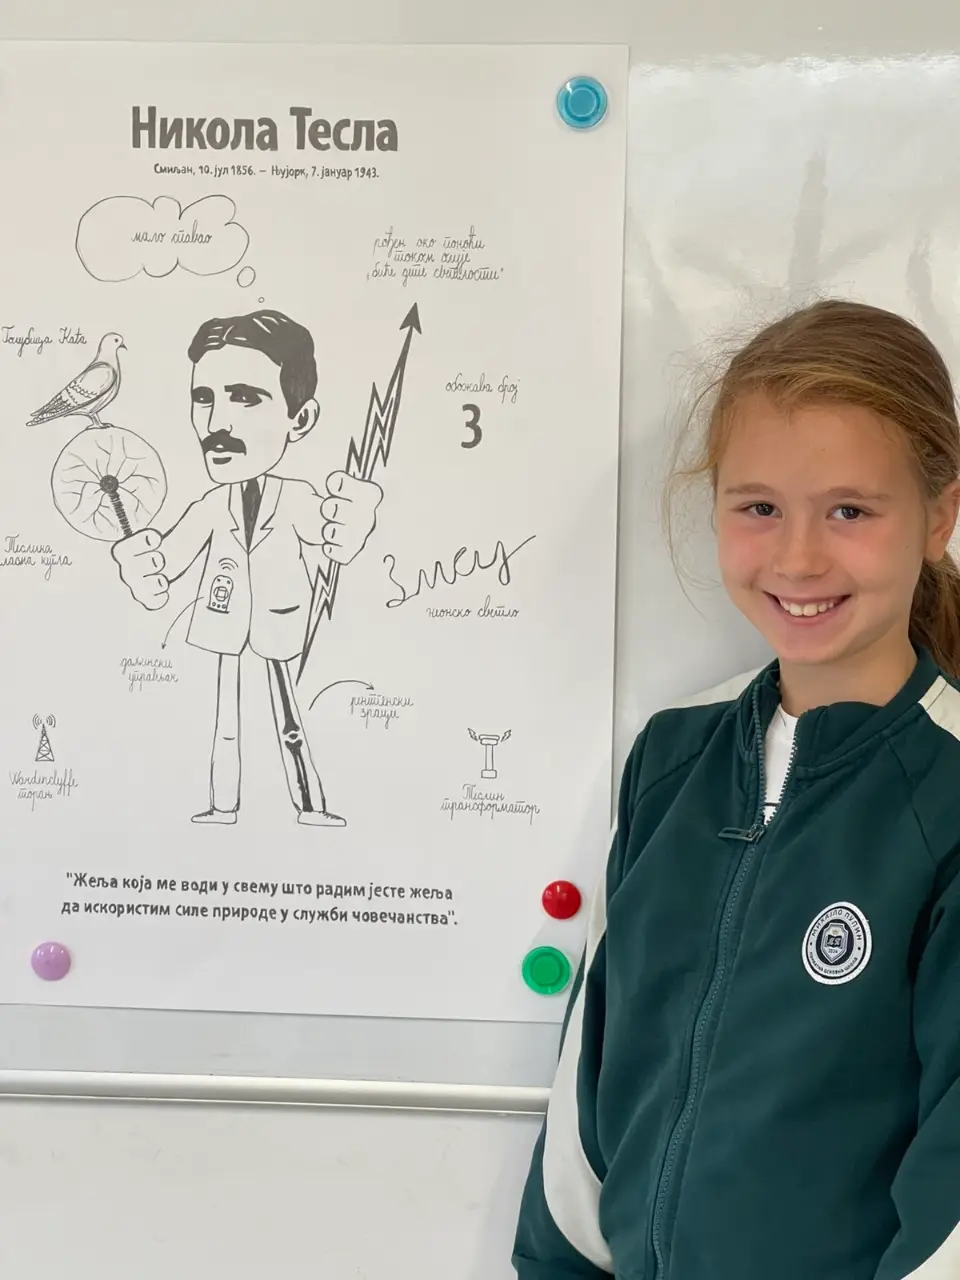 Никола Тесла
Смиљан, 10. јул 1856. – Њујорк, 7. јануар 1943.
мало спавао
рођен око поноћи
током олује
„биће дите светлости"
Голубица Kata
обожава број
3
Теслина
кугла
неонско светло
даљински
управљач
рентгенски
зраци
Wardenclyffe
торањ
Теслин
трансформатор
"Жеља која ме води у свему што радим јесте жеља
да искористим силе природе у служби човечанства".
МИХАЈЛО ПУПИН